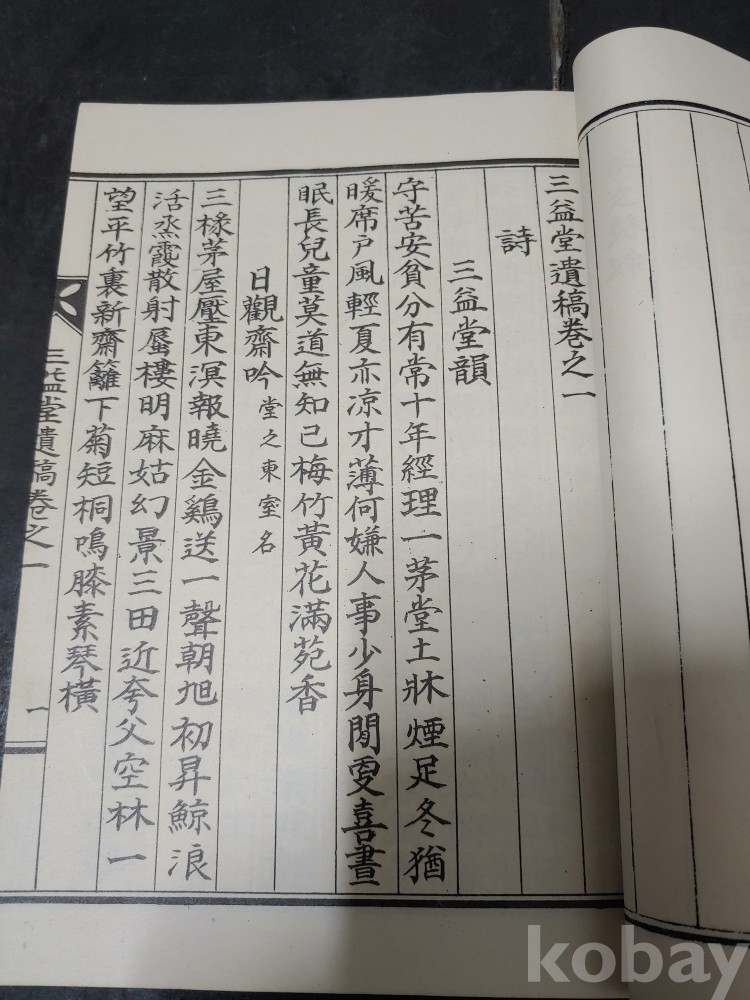 三益堂遺稿卷之一
詩
三益堂韻
守苦安貧分有常十年經理一茅堂土牀煙足冬猶
暖席戶風輕夏亦凉才薄何嫌人事少身閒更喜晝
眠長兒童莫道無知己梅竹黃花滿苑香
日觀齋吟堂之東室名
三椽茅屋壓東溟報曉金鷄送一聲朝旭初昇鯨浪
活烝霞散射蜃樓明麻姑幻景三田近夸父空林一
望平竹裏新齋籬下菊短桐鳴膝素琴橫
三益堂遺稿卷之一
一
kobay